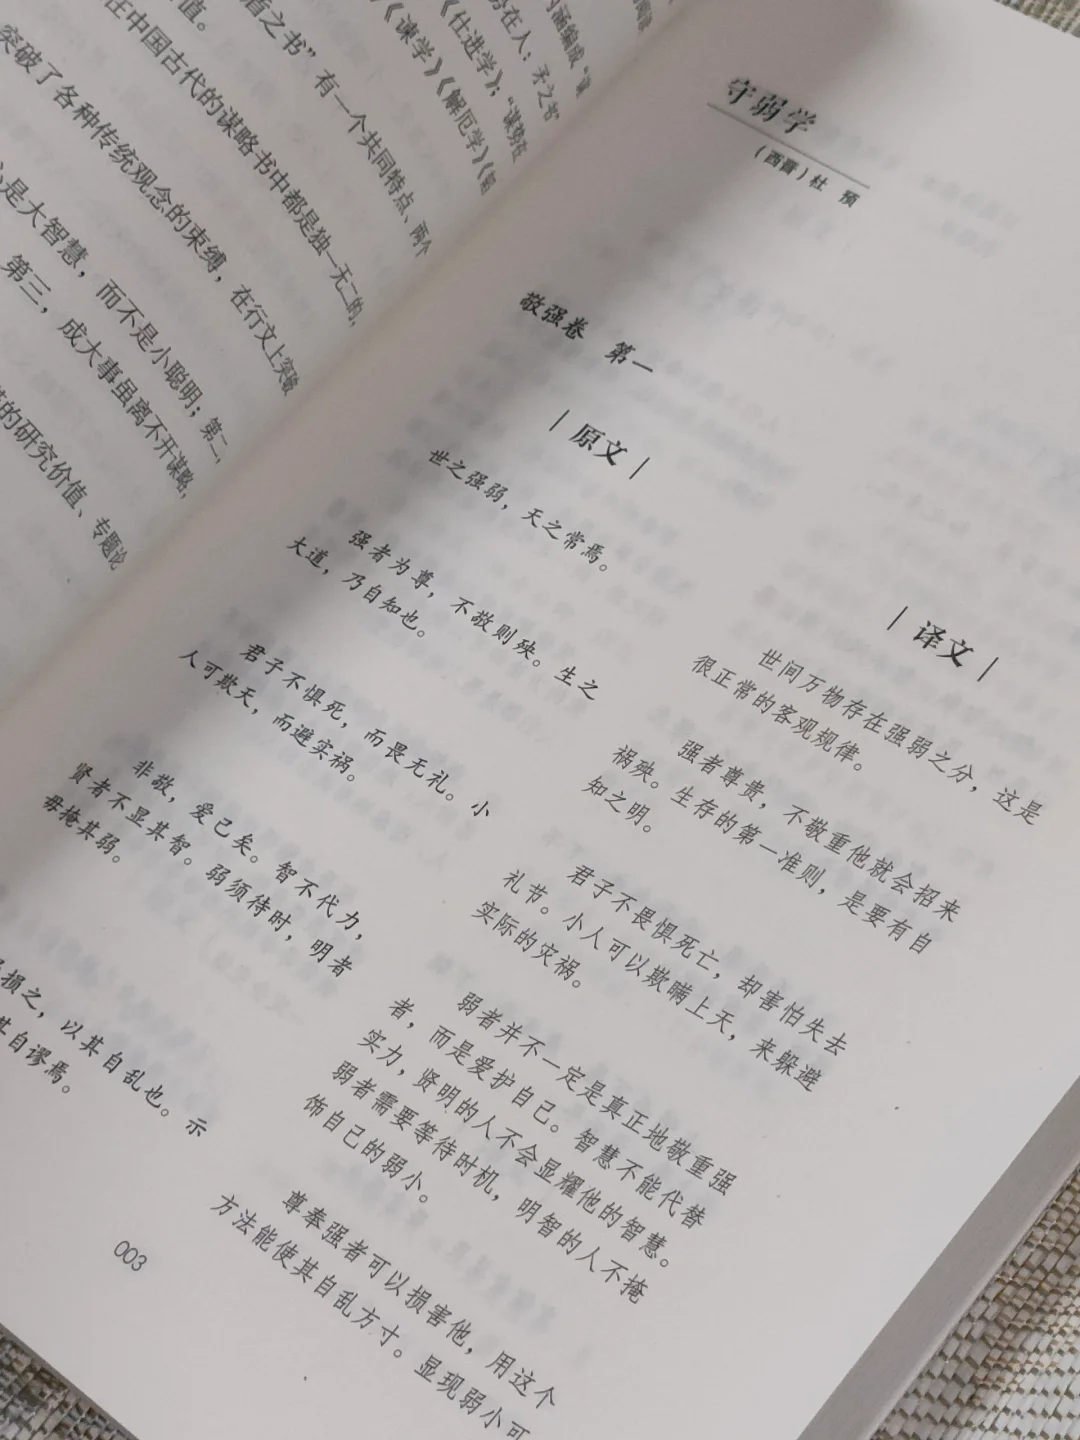 涵编成“谋
势在人：矛之书
《仕进学》；“谋势在
《谏学》《解厄学》《韬
盾之书”有一个共同特点、两个
值。
在中国古代的谋略书中都是独一无二的，
突破了各种传统观念的束缚，在行文上突破
心是大智慧，而不是小聪明；第二，
第三，成大事虽离不开谋略，
的研究价值、专题论
守弱学
（西晋）杜 预
敬强卷 第一
| 原文 |
世之强弱，天之常焉。
强者为尊，不敬则殃。生之
大道，乃自知也。
君子不惧死，而畏无礼。小
人可欺天，而避实祸。
非敬，爱己矣。智不代力，
贤者不显其智。弱须待时，明者
毋掩其弱。
损之，以其自乱也。示
其自谬焉。
| 译文 |
世间万物存在强弱之分，这是
很正常的客观规律。
强者尊贵，不敬重他就会招来
祸殃。生存的第一准则，是要有自
知之明。
君子不畏惧死亡，却害怕失去
礼节。小人可以欺瞒上天，来躲避
实际的灾祸。
弱者并不一定是真正地敬重强
者，而是爱护自己。智慧不能代替
实力，贤明的人不会显耀他的智慧。
弱者需要等待时机，明智的人不掩
饰自己的弱小。
尊奉强者可以损害他，用这个
方法能使其自乱方寸。显现弱小可
003